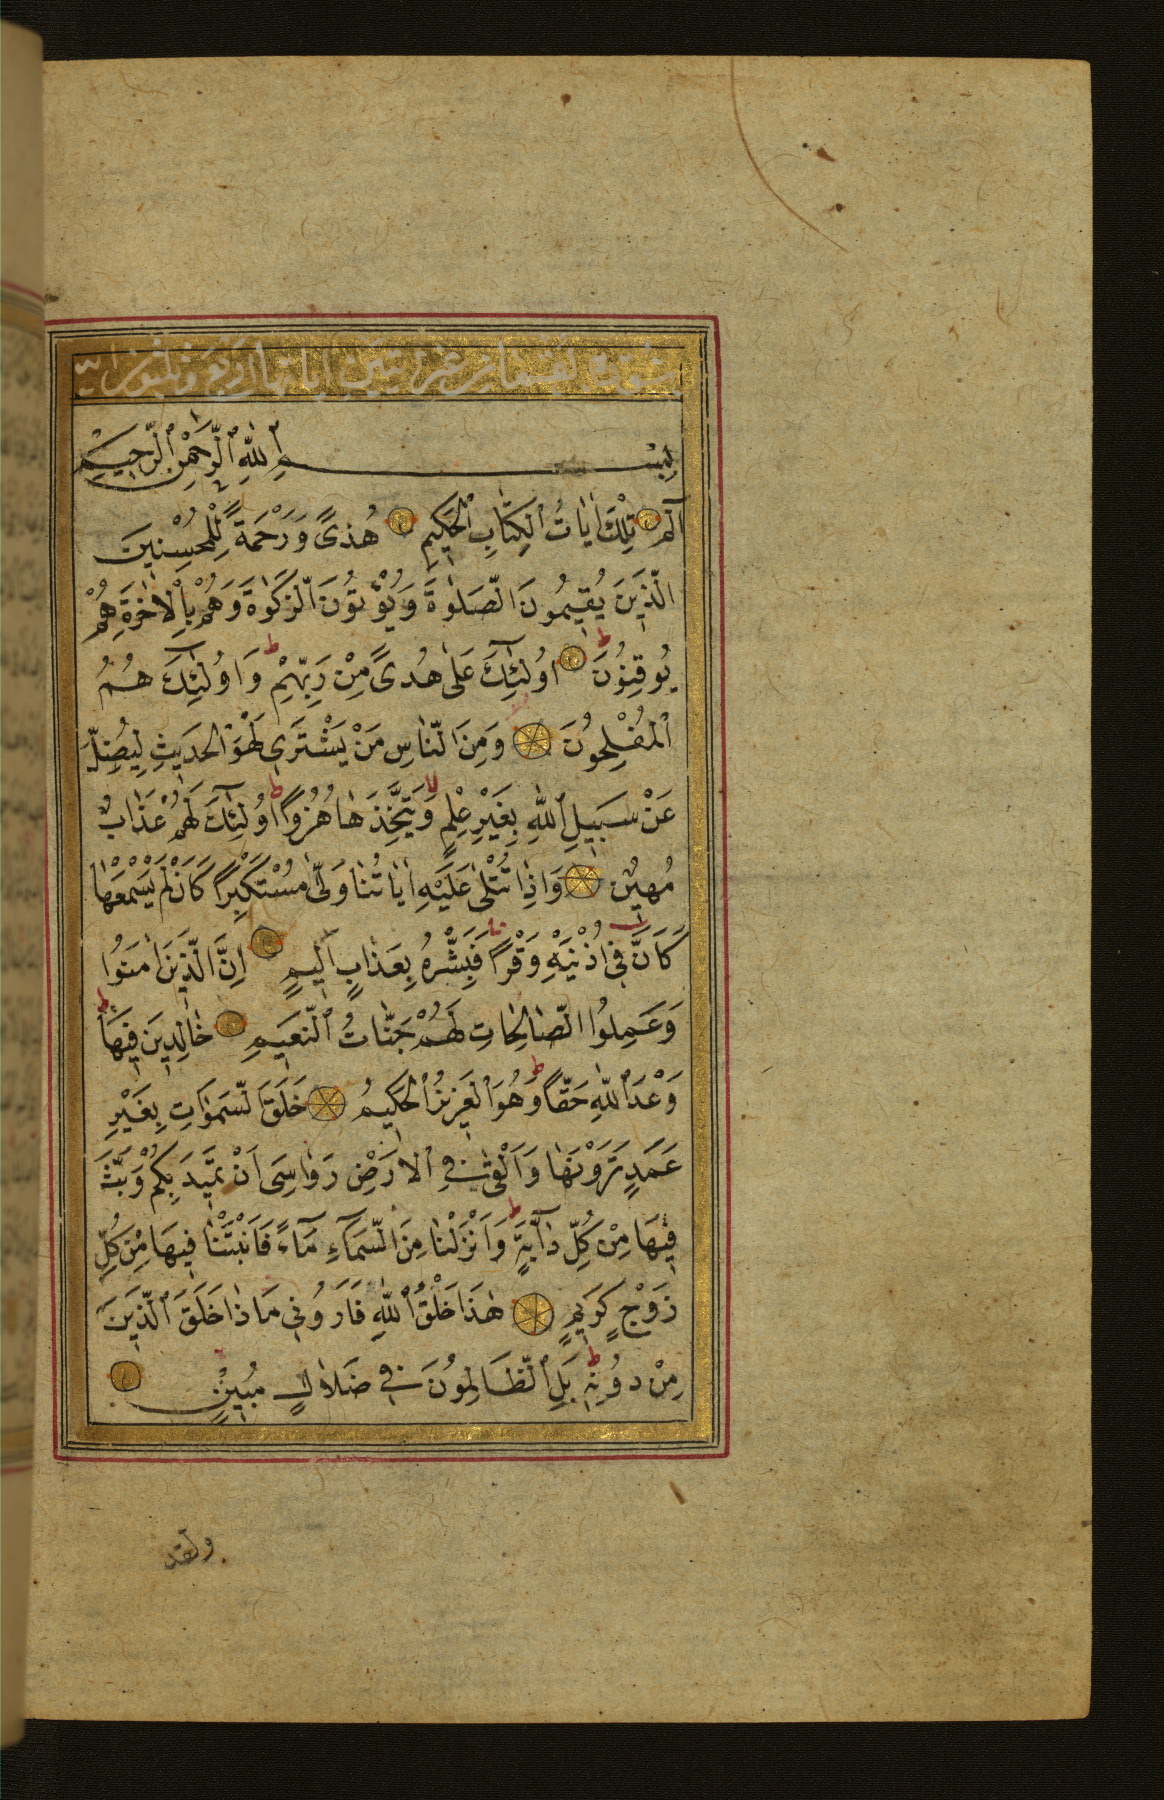 سورة لقمان غير آيتين اياتها اربع وثلثون اية
بِسْمِ اللّٰهِ الرَّحْمٰنِ الرَّحِيمِ
الٓمٓ تِلْكَ اٰيَاتُ الْكِتَابِ الْحَكِيمِ هُدًى وَرَحْمَةً لِلْمُحْسِنِينَ
الَّذِينَ يُقِيمُونَ الصَّلٰوةَ وَيُؤْتُونَ الزَّكٰوةَ وَهُمْ بِالْاٰخِرَةِ هُمْ
يُوقِنُونَ اُولٰٓئِكَ عَلٰى هُدًى مِنْ رَبِّهِمْ وَاُولٰٓئِكَ هُمُ
الْمُفْلِحُونَ وَمِنَ النَّاسِ مَنْ يَشْتَرِي لَهْوَ الْحَدِيثِ لِيُضِلَّ
عَنْ سَبِيلِ اللّٰهِ بِغَيْرِ عِلْمٍ وَيَتَّخِذَهَا هُزُوًا اُولٰٓئِكَ لَهُمْ عَذَابٌ
مُهِينٌ وَاِذَا تُتْلٰى عَلَيْهِ اٰيَاتُنَا وَلّٰى مُسْتَكْبِرًا كَاَنْ لَمْ يَسْمَعْهَا
كَاَنَّ فِي اُذُنَيْهِ وَقْرًا فَبَشِّرْهُ بِعَذَابٍ اَلِيمٍ اِنَّ الَّذِينَ اٰمَنُوا
وَعَمِلُوا الصَّالِحَاتِ لَهُمْ جَنَّاتُ النَّعِيمِ خَالِدِينَ فِيهَا
وَعْدَ اللّٰهِ حَقًّا وَهُوَ الْعَزِيزُ الْحَكِيمُ خَلَقَ السَّمٰوَاتِ بِغَيْرِ
عَمَدٍ تَرَوْنَهَا وَاَلْقٰى فِي الْاَرْضِ رَوَاسِيَ اَنْ تَمِيدَ بِكُمْ وَبَثَّ
فِيهَا مِنْ كُلِّ دَآبَّةٍ وَاَنْزَلْنَا مِنَ السَّمَآءِ مَآءً فَاَنْبَتْنَا فِيهَا مِنْ كُلِّ
زَوْجٍ كَرِيمٍ هٰذَا خَلْقُ اللّٰهِ فَاَرُونِي مَاذَا خَلَقَ الَّذِينَ
مِنْ دُونِهِ بَلِ الظَّالِمُونَ فِي ضَلَالٍ مُبِينٍ
ولقد